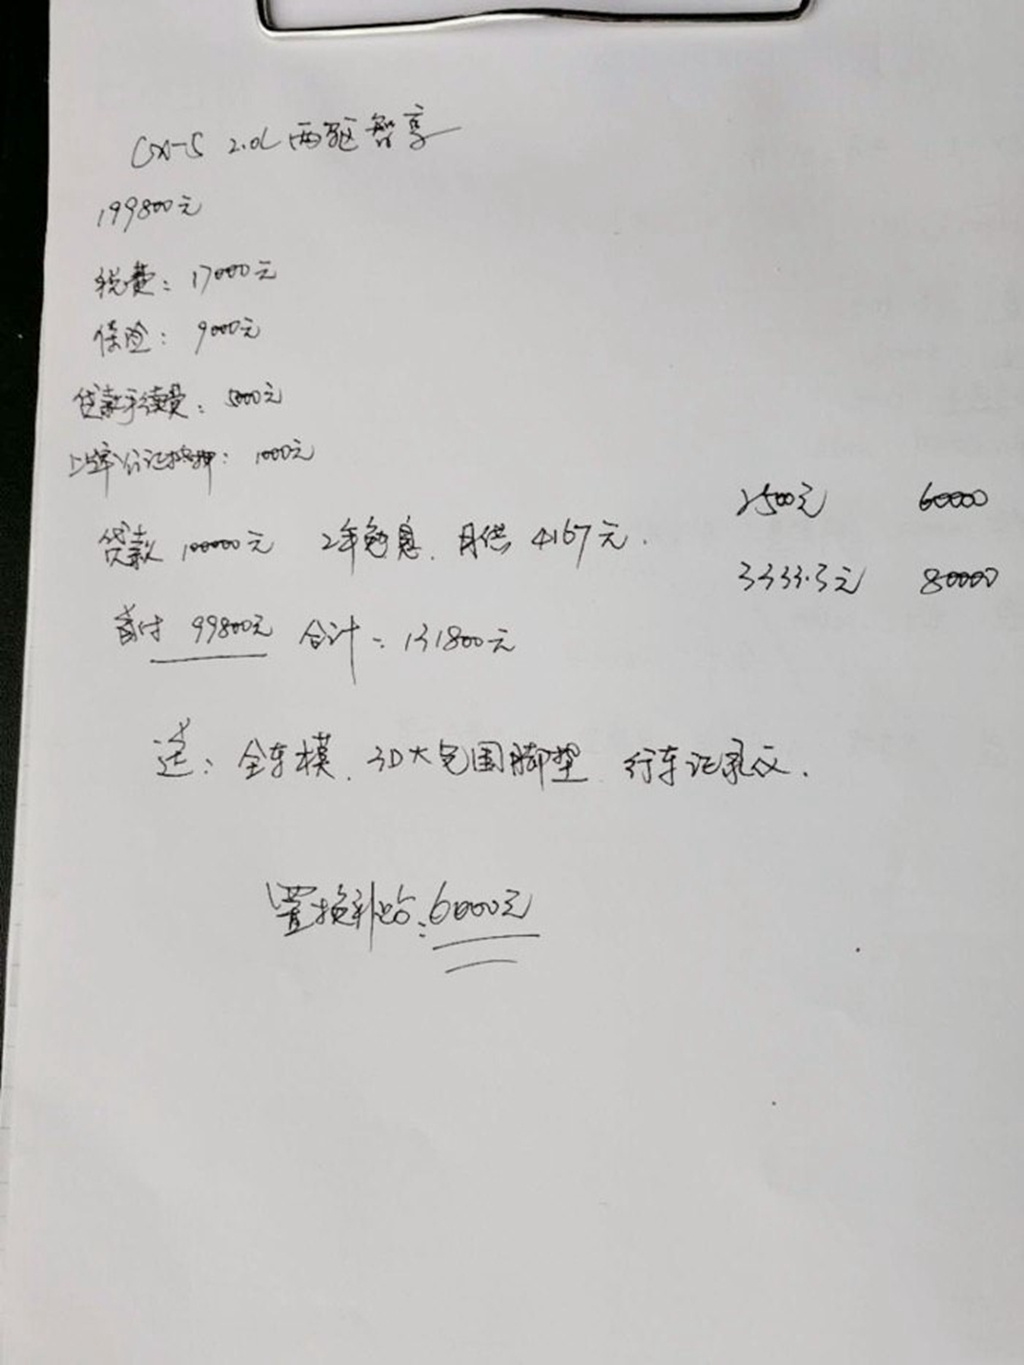 CX-5 2.0L 两驱智享
199800元
税费：17000元
保险：9000元
贷款手续费：5000元
上牌公证抵押：1000元
2500元 60000
贷款 100000元 2年免息．月供 4167元．
3333.3元 80000
首付 99800元 合计：131800元
送：全车模．3D大包围脚垫 行车记录仪．
置换补贴：6000元